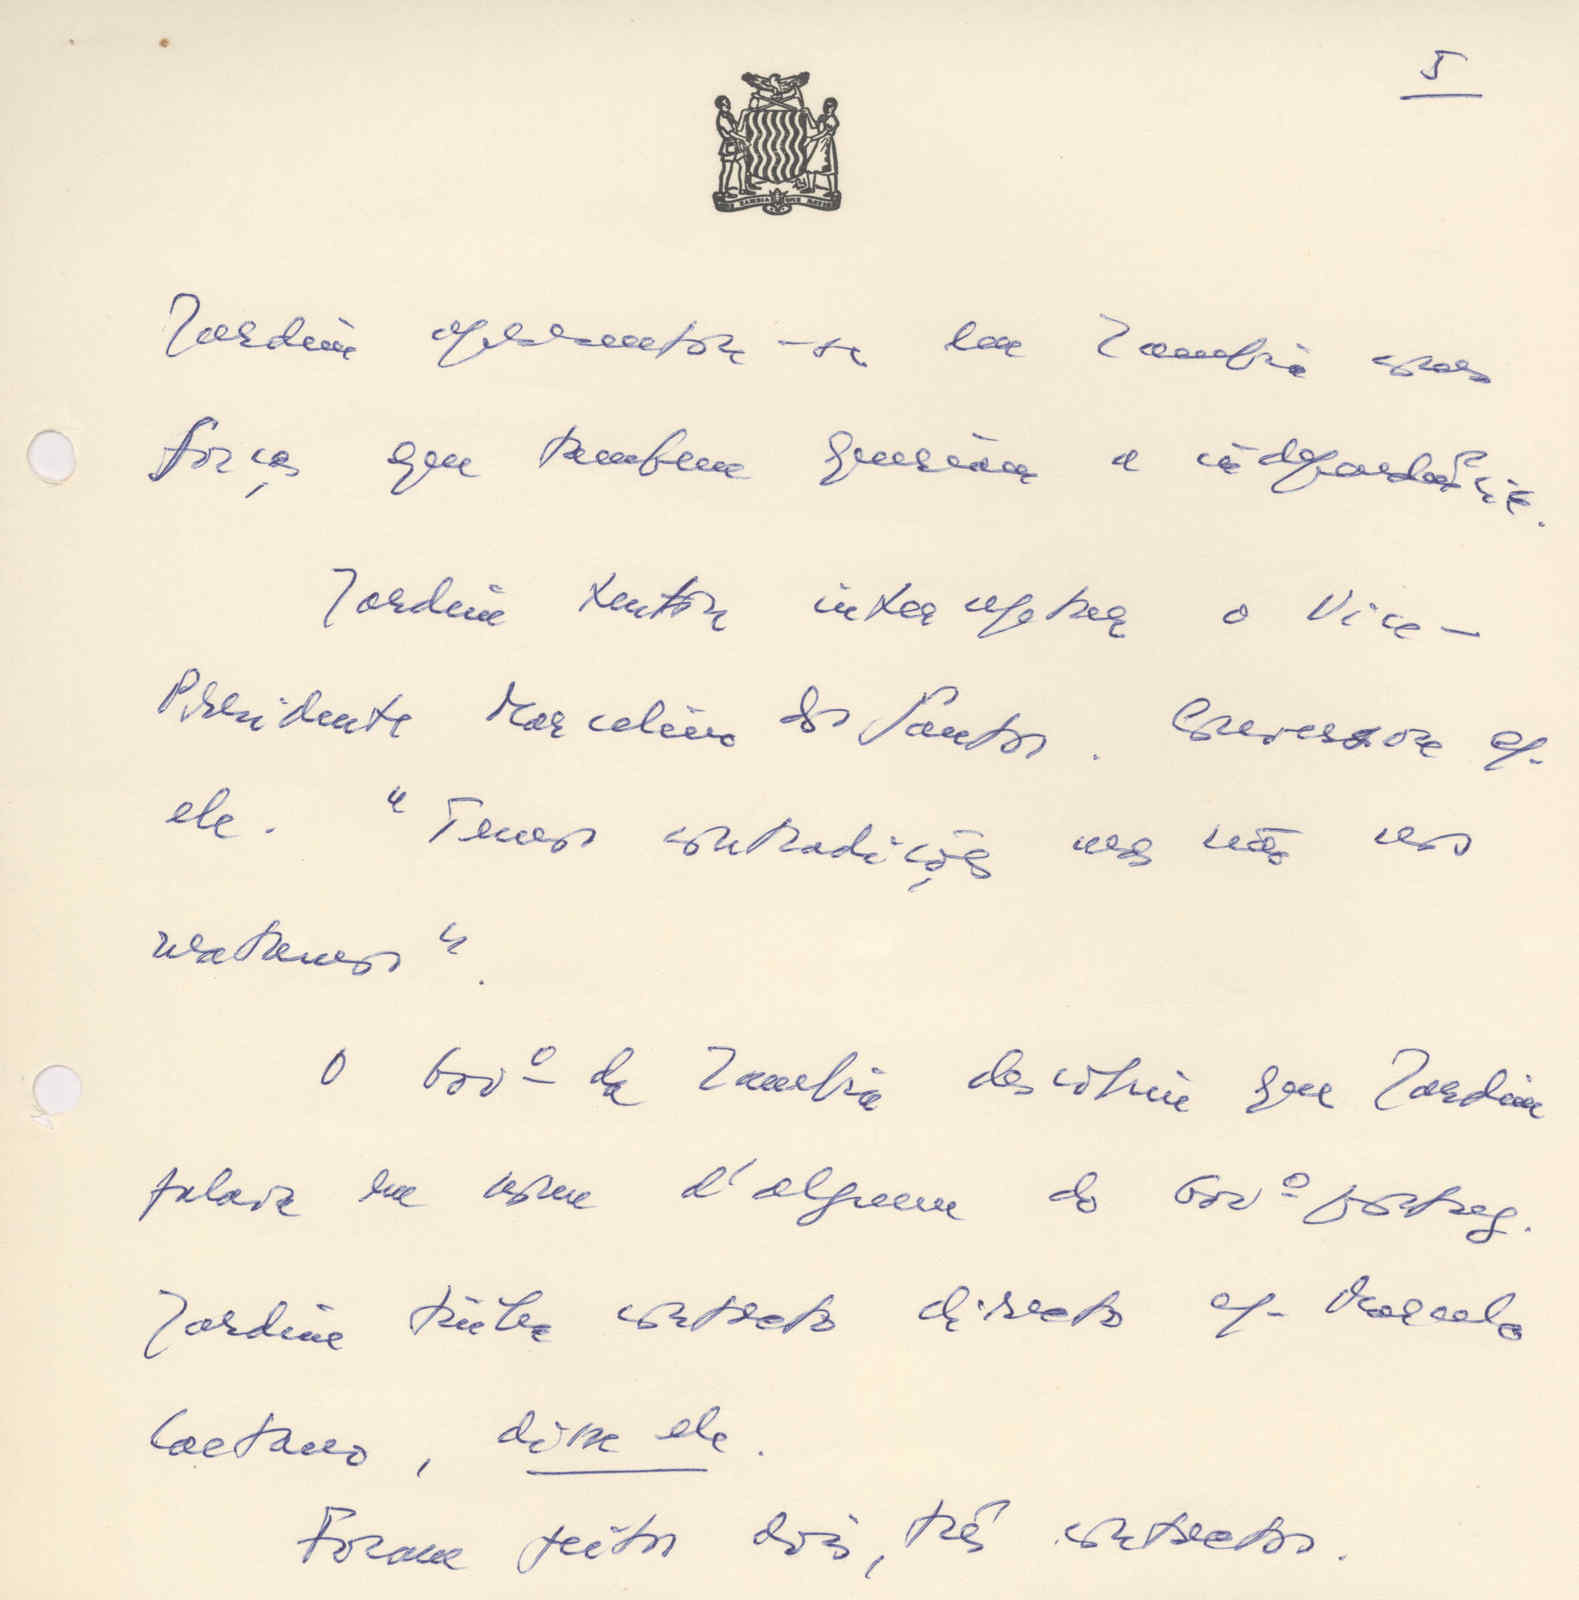 I
ONE ZAMBIA ONE NATION
Jardim apresentou-se em Zambia como
força que tambem queriam a independência.
Jardim tentou interceptar o Vice-
Presidente Marcelino dos Santos. Conversou c/
ele. "Temos contradições mas não nos
matamos".
O Gov.º da Zambia descobriu que Jardim
falava em nome d'alguem do Gov.º portug.
Jardim tinha contacto directo c/ Marcelo
Caetano, disse ele.
Foram feitos dois, três contactos.